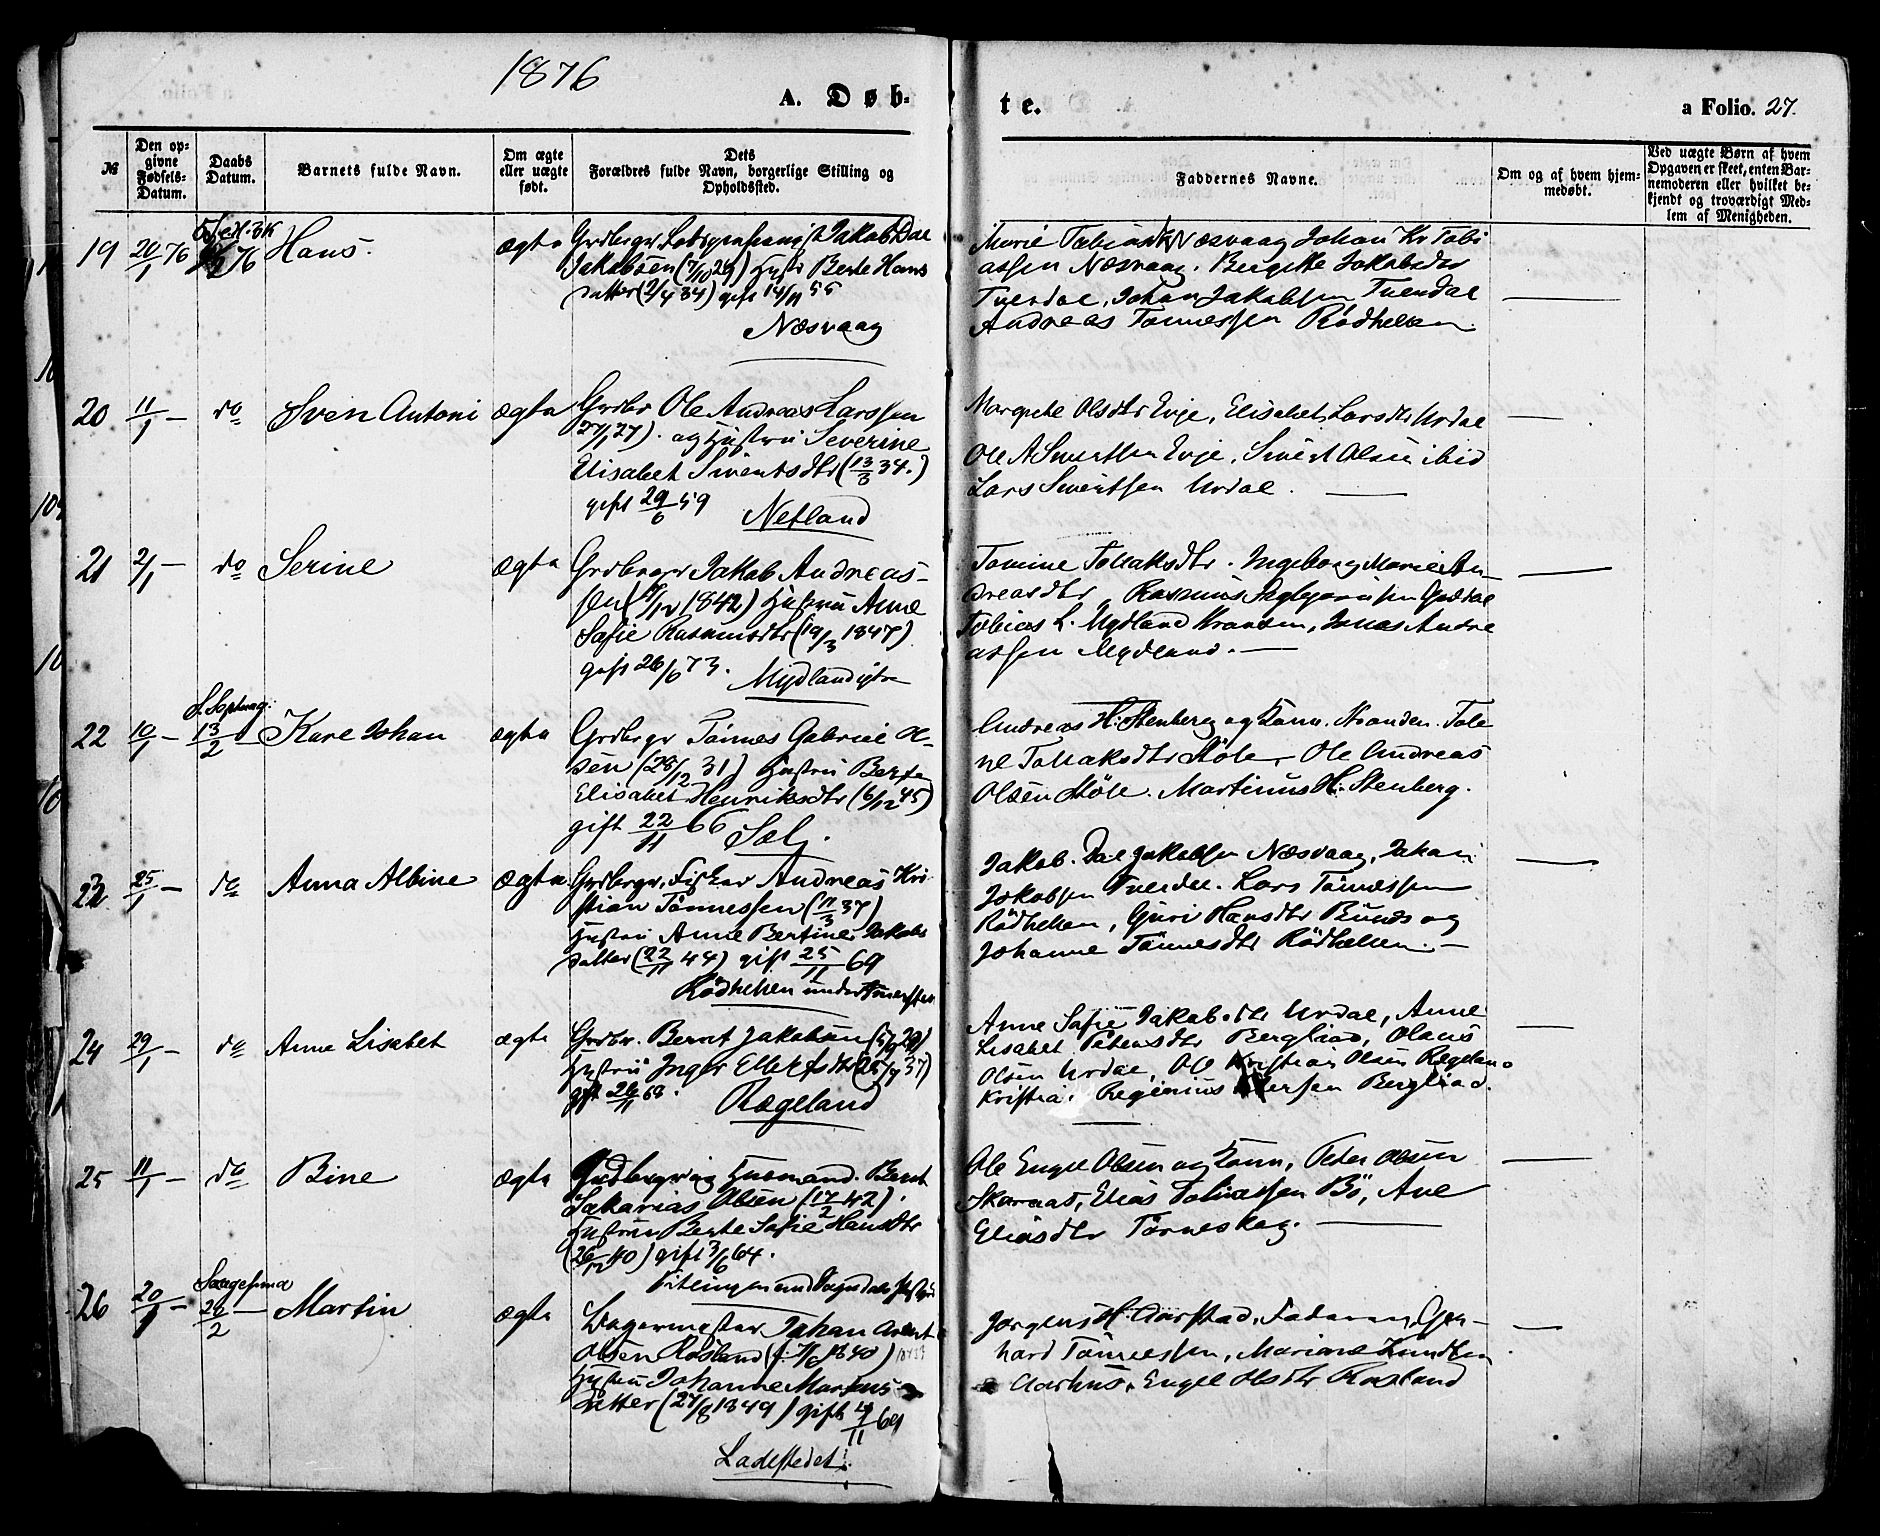 1876
A. Døb-
te.
a Folio. 27.
№
Den op-
givne
Fødsels-
Datum.
Daabs
Datum.
Barnets fulde Navn.
Om ægte
eller uægte
født.
Dets
Forældres fulde Navn, borgerlige Stilling og
Opholdssted.
Faddernes Navne.
Om og af hvem hjem-
medøbt.
Ved uægte Børn af hvem
Opgaven er skeet, enten Bar-
nemoderen eller hvilket be-
kjendt og troværdigt Med-
lem af Menigheden.
19 20/1 76 Hans. ægte
Jakobsen (7/10 29) Hustr Berte Hans
datter (2/4 34) gift 14/11 55
Næsvaag
Marie Tobias Næsvaag Johan Kr Tobi
assen Næsvaag. Bergitte Jakobsdtr
Tuerdal, Johan Jakobsen Tuerdal
Andreas Tønnessen Rödhellen.
20 11/1 — do Sven Antoni ægte
Grdbr Ole Andreas Larssen
27/1 27). og Hustru Severine
Elisabet Sivertsdtr (13/3 34.)
gift 29/6 59 Netland
Margrete Olsdtr Evje, Elisabet Larsdtr Urdal
Ole A Sivertsen Evje, Sivert Olsen ibid
Lars Sivertsen Urdal.
21 2/1 — do Serine ægte
Grdbrger Jakob Andreas-
sen ( /12 1842) Hustru Anne
Sofie Rasmusdtr (19/3 1847)
gift 26/6 73. Mydland
Tomine Tollaksdtr. Ingeborg Marie An-
dreasdtr, Rasmus
Tobias L. Mydland Jonas Andre
assen Mydland.
22 10/1 — S. Septuag.
13/2 — Karl Johan ægte
Grdbrgr Tönnes Gabriel Ol-
sen (28/12 31) Hustru Berte
Elisabet Henriksdtr (6/12 45)
gift 22/11 66 Sæl.
Andreas H. Stenberg og Kone. Tole-
ne Tollaksdtr Støle, Ole Andreas
Olsen Støle. Martinus H. Stenberg.
23 25/1 — do Anna Albine ægte
Grdbrgr. Fisker Andreas Kri-
stian Tönnessen (11/3 37)
Hustru Anne Bertine Jakobs
datter (22/11 44) gift 25/11 69
Rödhellen under
Jakob. Dal Jakobsen Næsvaag, Johan
Jakobsen Tuerdal. Lars Tönnessen
Rödhellen, Guri Hansdtr Bunds og
Johanne Tönnesdtr Rödhellen.
24 29/1 — do Anne Lisabet ægte
Grdbr. Bernt Jakobsen (5/9 29)
Hustru Inger Ellefsdtr (25/4 37)
gift 26/11 63. Rægeland
Anne Sofie Jakobsdtr Urdal, Anne
Lisabet Petersdtr Bergliad, Olaus
Olsen Urdal, Ole Kristian Olsen Regeland
Kristia. Reginius Bergliad.
25 11/1 — do Bine ægte
Grdbrger og Husmand. Bernt
Sakarias Olsen (17/2 42).
Hustru Berte Sofie Hansdtr
(26/12 40) gift 3/6 64.
Ole Engel Olsen og Kone, Peter Olsen
Skaraas, Elias Tobiassen Bö, Ane
Eliasdtr Törneskag.
26 20/1 — 20/2 — Martin ægte
Johan Arent
Olsen Rosland
Hustru Johanne Martins-
datter (27/8 1849) gift 4/11 69
Ladestedet.
Jørgen H. Aarstad, Faderen, Ger-
hard Tönnessen, Mariane Knudsen
Aarhus, Engel Olsdtr Rosland